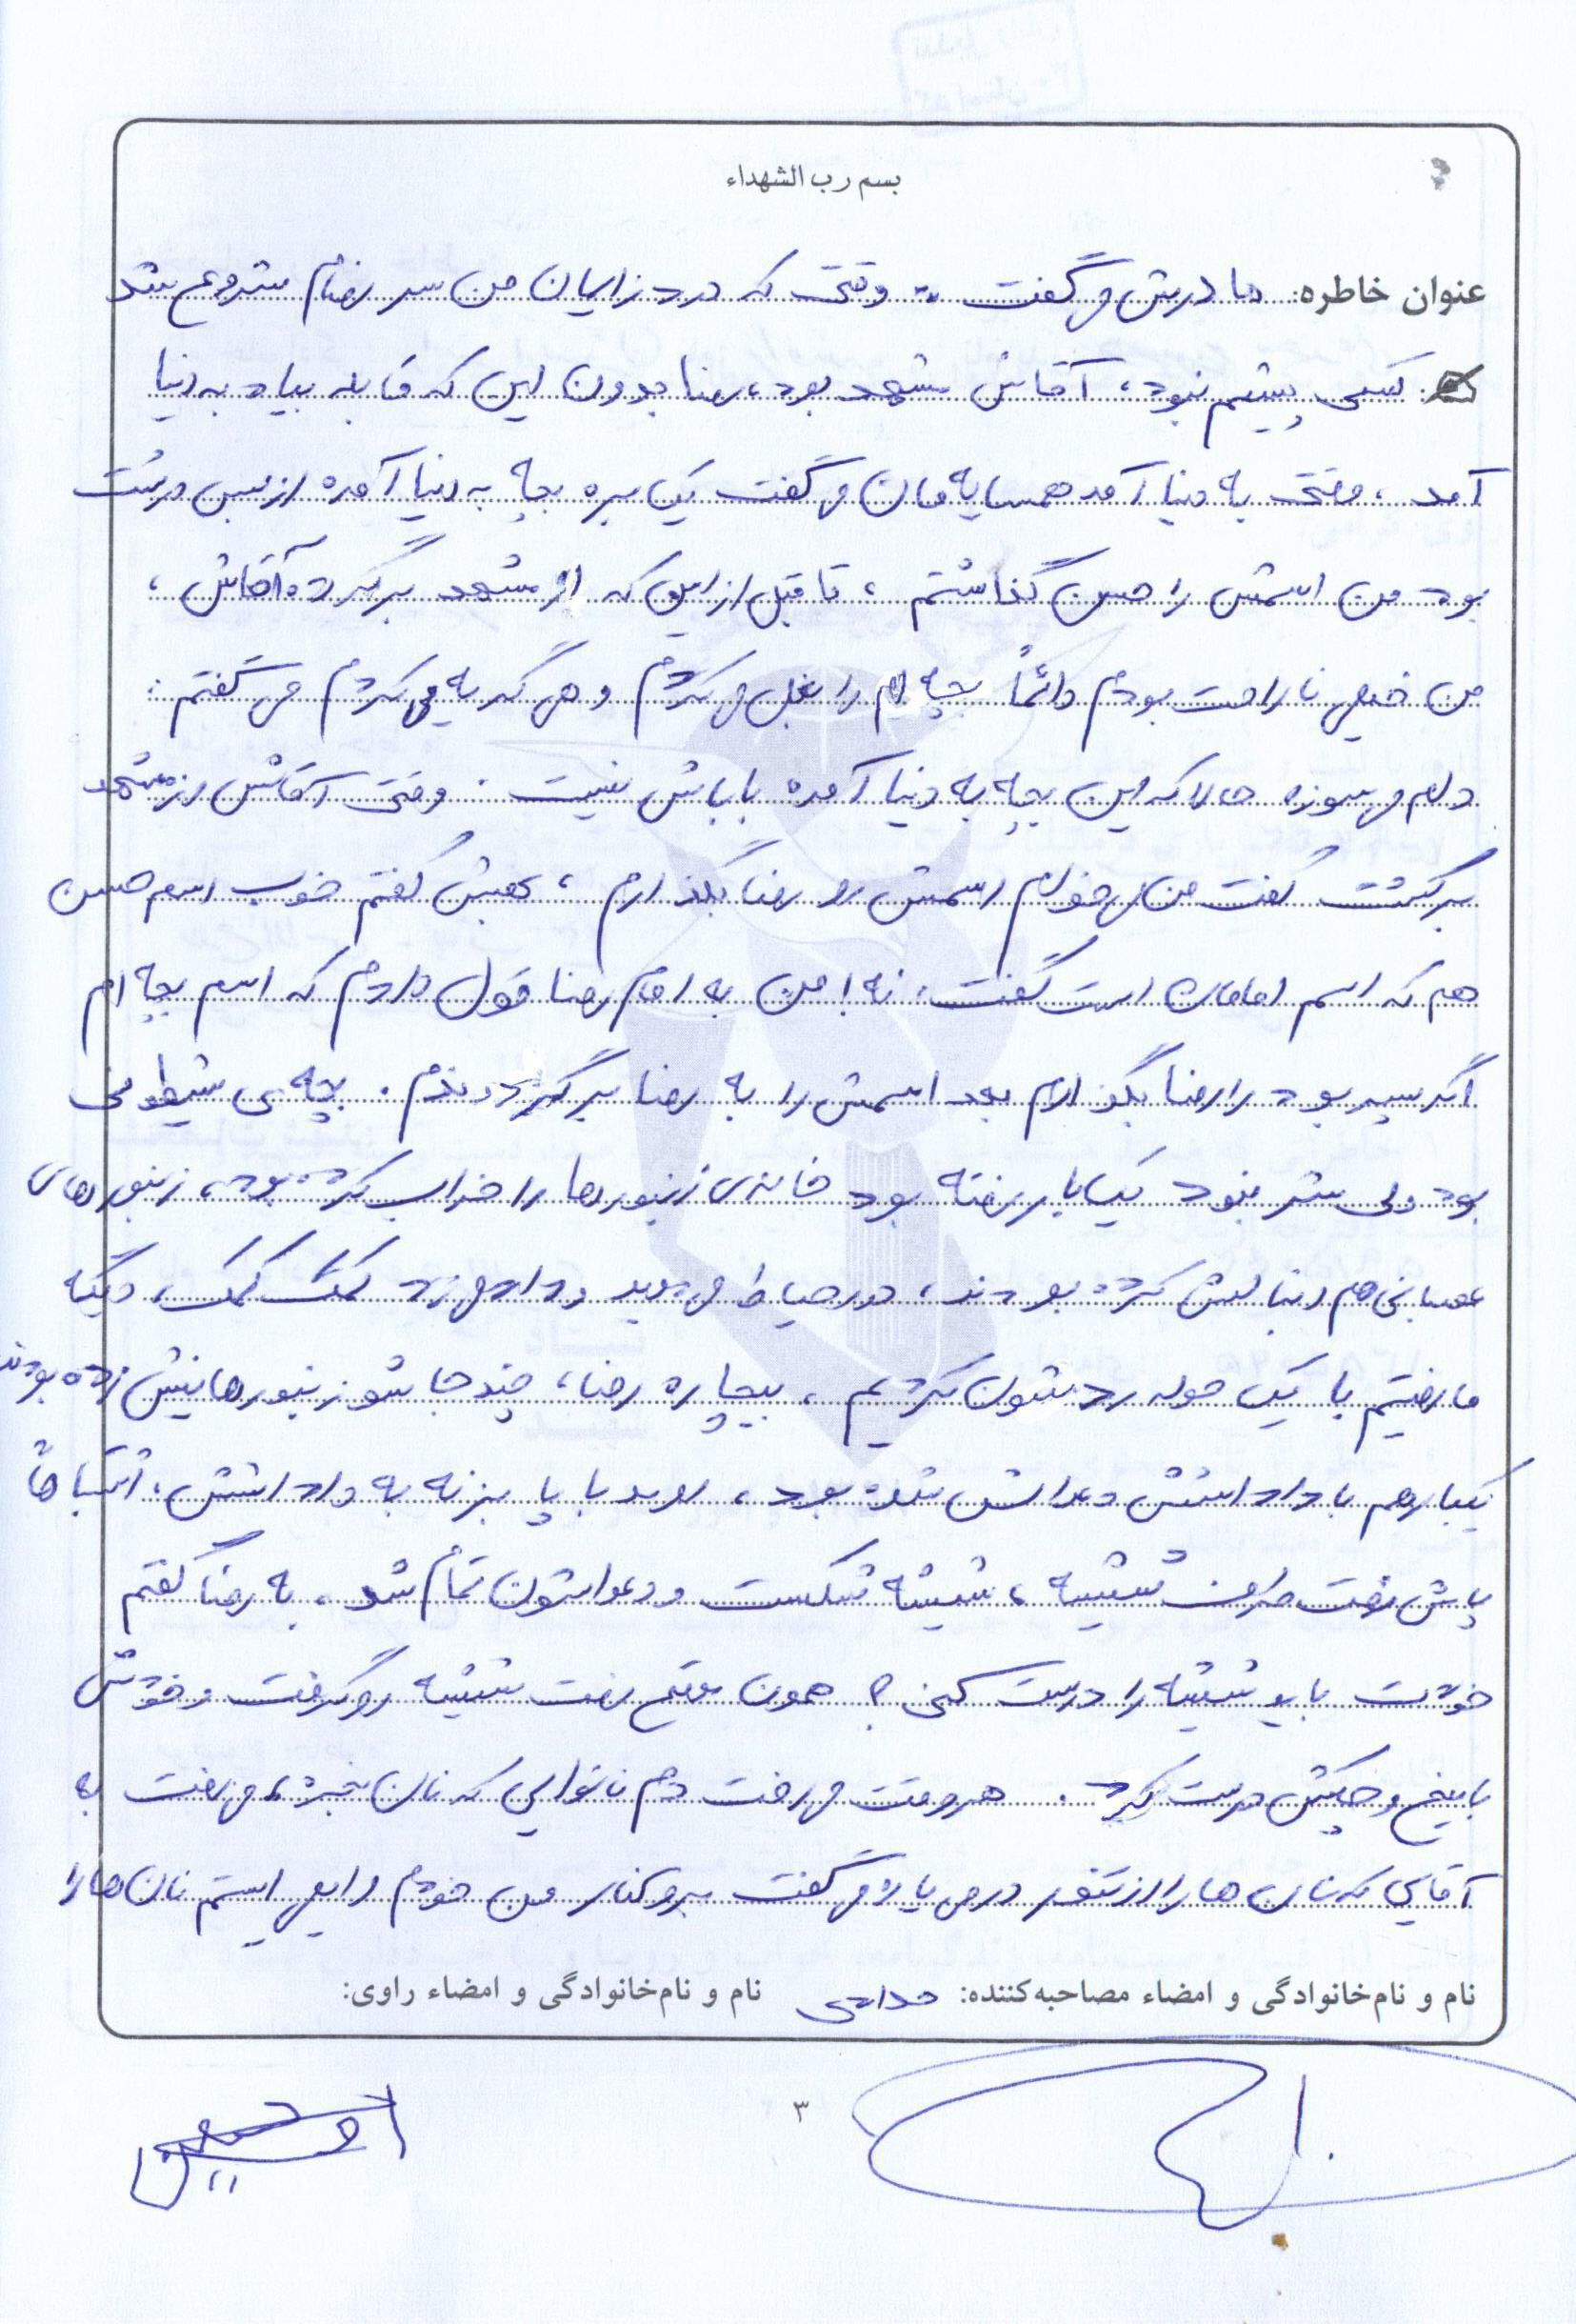 بسم رب الشهداء
عنوان خاطره: مادرش می گفت :« وقتی که درد زایمان من سر رضام شروع شد
کسی پیشم نبود، آقاش مشهد بود، رضا بدون این که قابله بیاد به دنیا
آمد، وقتی به دنیا آمد همسایه مان می گفت یک بره بچه به دنیا آمده از بس درشت
بود من اسمش را حسن گذاشتم ، تا قبل از این که از مشهد برگرده آقاش ،
من خیلی ناراحت بودم دائماً بچه ام را بغل می کردم و هی گریه می کردم می گفتم :
دلم می سوزه حالا که این بچه به دنیا آمده باباش نیست . وقتی آقاش از مشهد
برگشت گفت من می خوام اسمش رو رضا بگذارم ، بهش گفتم خوب اسم حسن
هم که اسم امامان است گفت، نه! من به امام رضا قول دادم که اسم بچه ام
اگر پسر بود را رضا بگذارم بعد اسمش را به رضا برگرداندم . بچه ی شیطونی
بود ولی شر نبود یک بار رفته بود خانه ی زنبورها را خراب کرده بود، زنبورهای
عصبانی هم دنبالش کرده بودند، در حیاط می دوید و داد می زد کمک کمک، دیگه
ما رفتیم با یک حوله ردشون کردیم ، بیچاره رضا، چند جاشو زنبورها نیش زده بودند
یکبار هم با داداشش دعواش شده بود، اومد با پا بزنه به داداشش، اشتباهاً
پاش رفت طرف شیشه ، شیشه شکست و دعواشون تمام شد . به رضا گفتم
خودت باید شیشه را درست کنی ؟ همون موقع رفت شیشه رو گرفت و خودش
با میخ و چکش درست کرد . هر وقت می رفت دم نانوایی که نان بخره، می رفت به
آقایی که نان ها را از تنور در می یاره می گفت برو کنار من خودم وایمی ایستم نان ها را
نام و نام‌خانوادگی و امضاء مصاحبه‌کننده: نام و نام‌خانوادگی و امضاء راوی:
۳